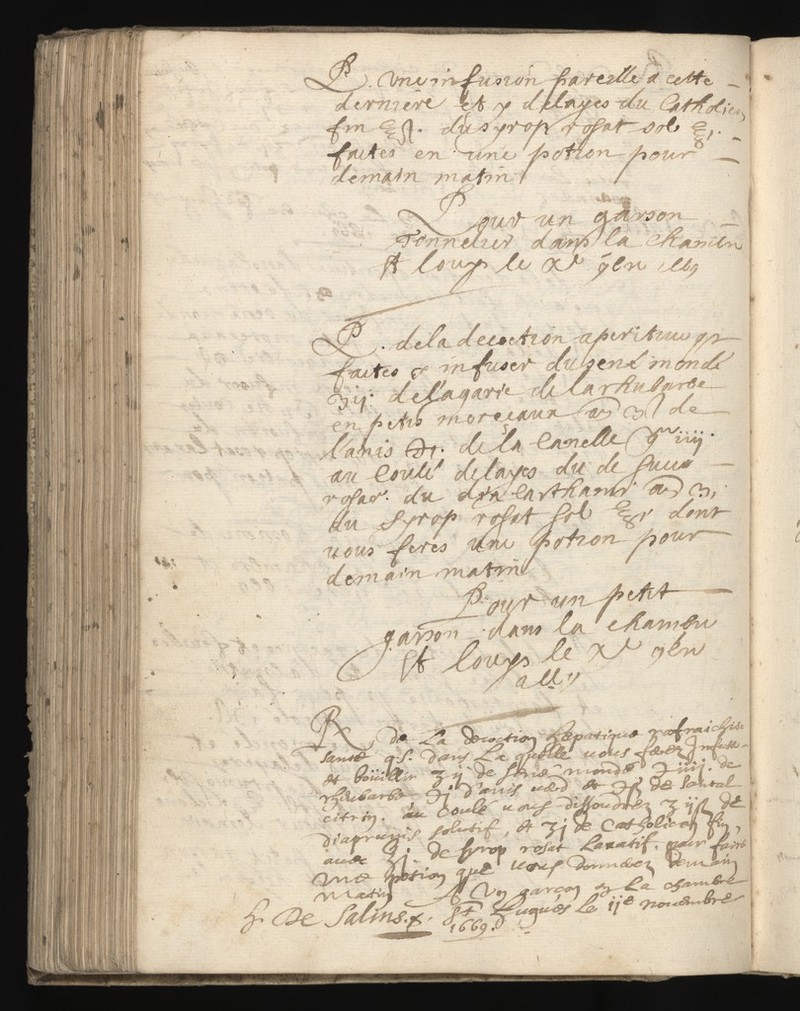 ℞. Une infusion pareille a cette
derniere et y delayes du Catholicon
fin ℥ß. du syrop rosat sol ℥j.
faites en une potion pour
demain matin
Pour un garson
Tonnelier dans la chambre
St louys le xe 9bre 1669
℞. de la decoction aperitive qs
faites y infuser du sené mondé
ʒij. de l'agaric de la rhubarbe
en petis morceaux aa ʒß de
l'anis ℈j. de la Canelle gr iiij.
au Coulé delayes du de succo
rosar. du dia Carthami aa ʒj
du Syrop rosat sol ℥j dont
vous feres une potion pour
demain matin
Pour un petit
garson dans la chambre
St louys le xe 9bre
℞ De La decoction hepatique rafraichis
sante q.s. dans La quelle vous ferez infuser
et boüillir ʒij de sené mondé ℈iiij. de
rhubarbe ℈j d'anis verd et ℈ß de santal
citrin. au coulé vous dissoudrez ʒijß de
diaprunis solutif, et ʒj de Catholicon fin,
avec ℥j. de syrop rosat Laxatif. pour faire
une potion que vous donnerez demain
matin A Un garçon de La chambre
H. De Salins. St Hugues Le 11e novembre
1669.